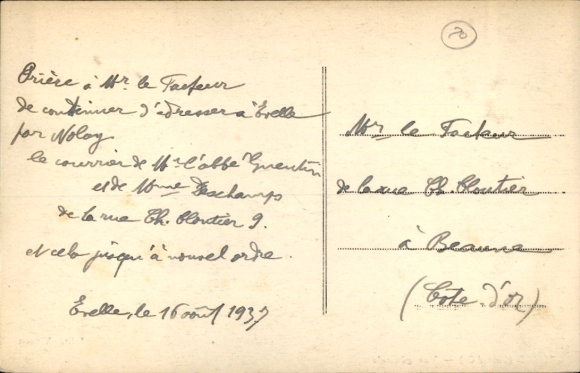 Prière à Mr. le Facteur
de continuer d'adresser à Evelle
par Nolay
le courrier de Mr l'abbé Quentin
et de Mme Deschamps
de la rue Th. Cloutier 9.
et cela jusqu'à nouvel ordre.
Evelle, le 16 août 1937
70
Mr le Facteur
de la rue Th. Cloutier
à Beaune
(Côte d'Or)